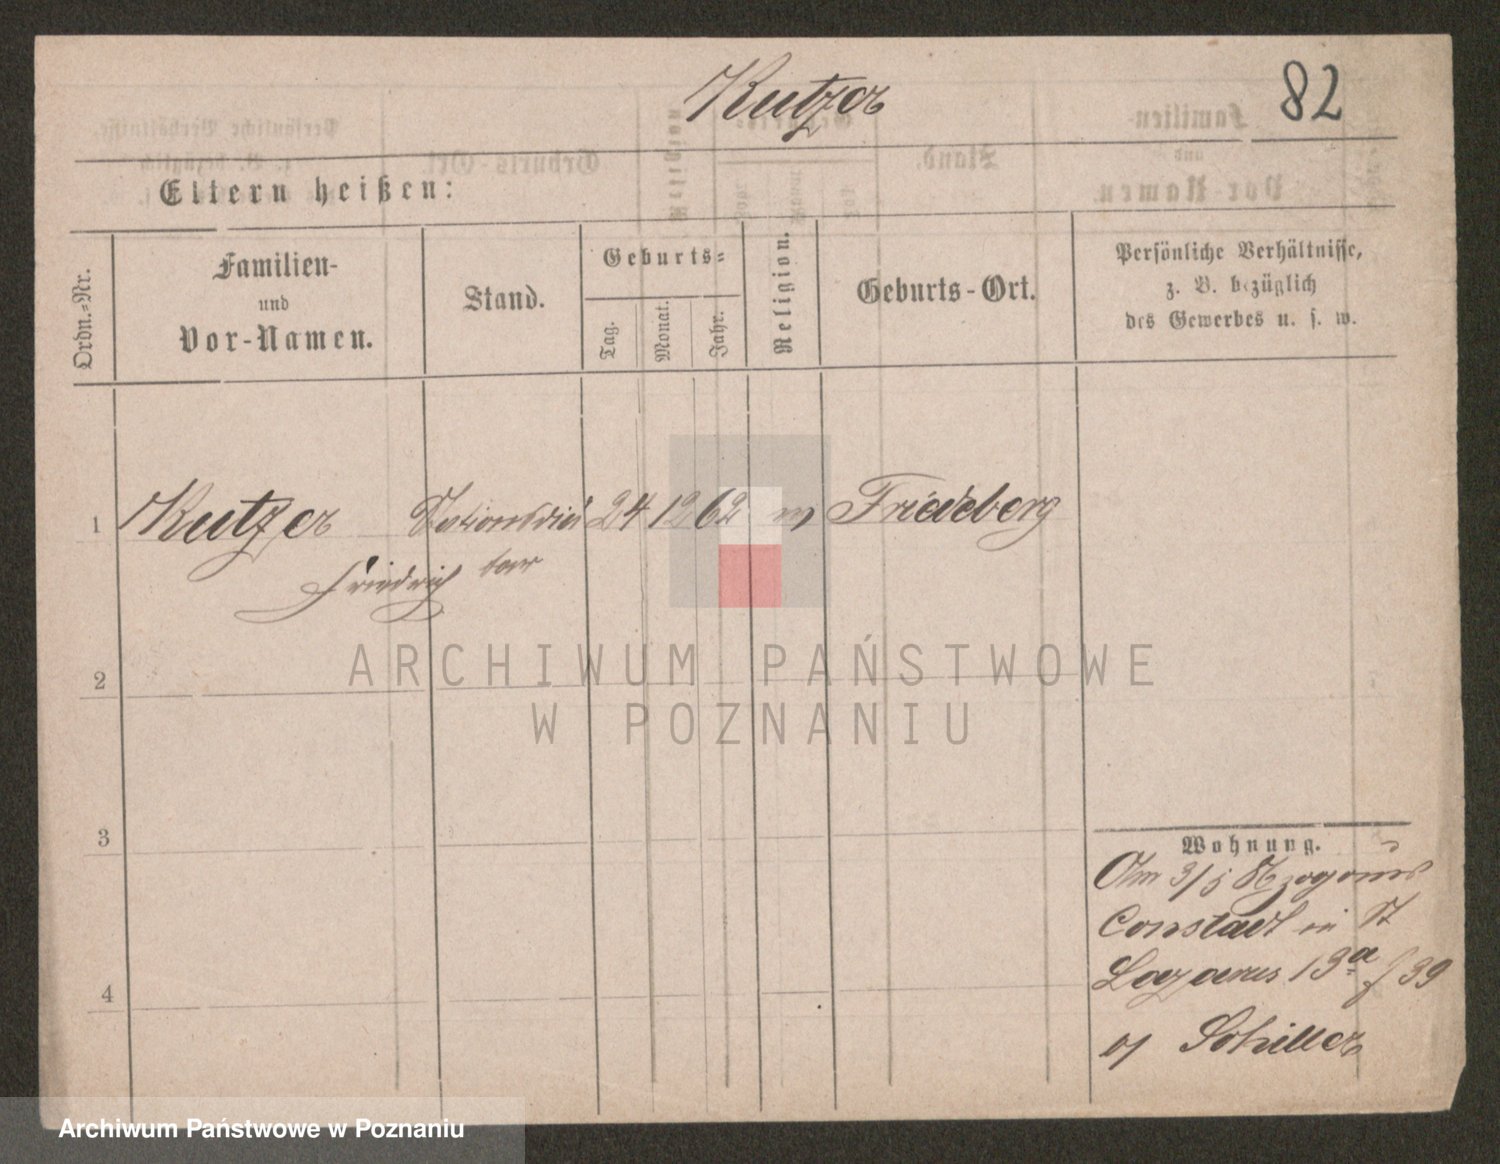 Kutzer
82
Eltern heißen:
Ordn.-Nr.
Familien-
und
Vor-Namen.
Stand.
Geburts-
Tag.
Monat.
Jahr.
Religion.
Geburts-Ort.
Persönliche Verhältnisse,
z. B. bezüglich
des Gewerbes u. s. w.
1 Kutzer 24 12 62 Friedeberg
Friedrich
2
3
4
Wohnung.
Am 3/5
Constadt in St
Lazarus 13a f 39
b/ Schiller
ARCHIWUM PAŃSTWOWE
W POZNANIU
Archiwum Państwowe w Poznaniu